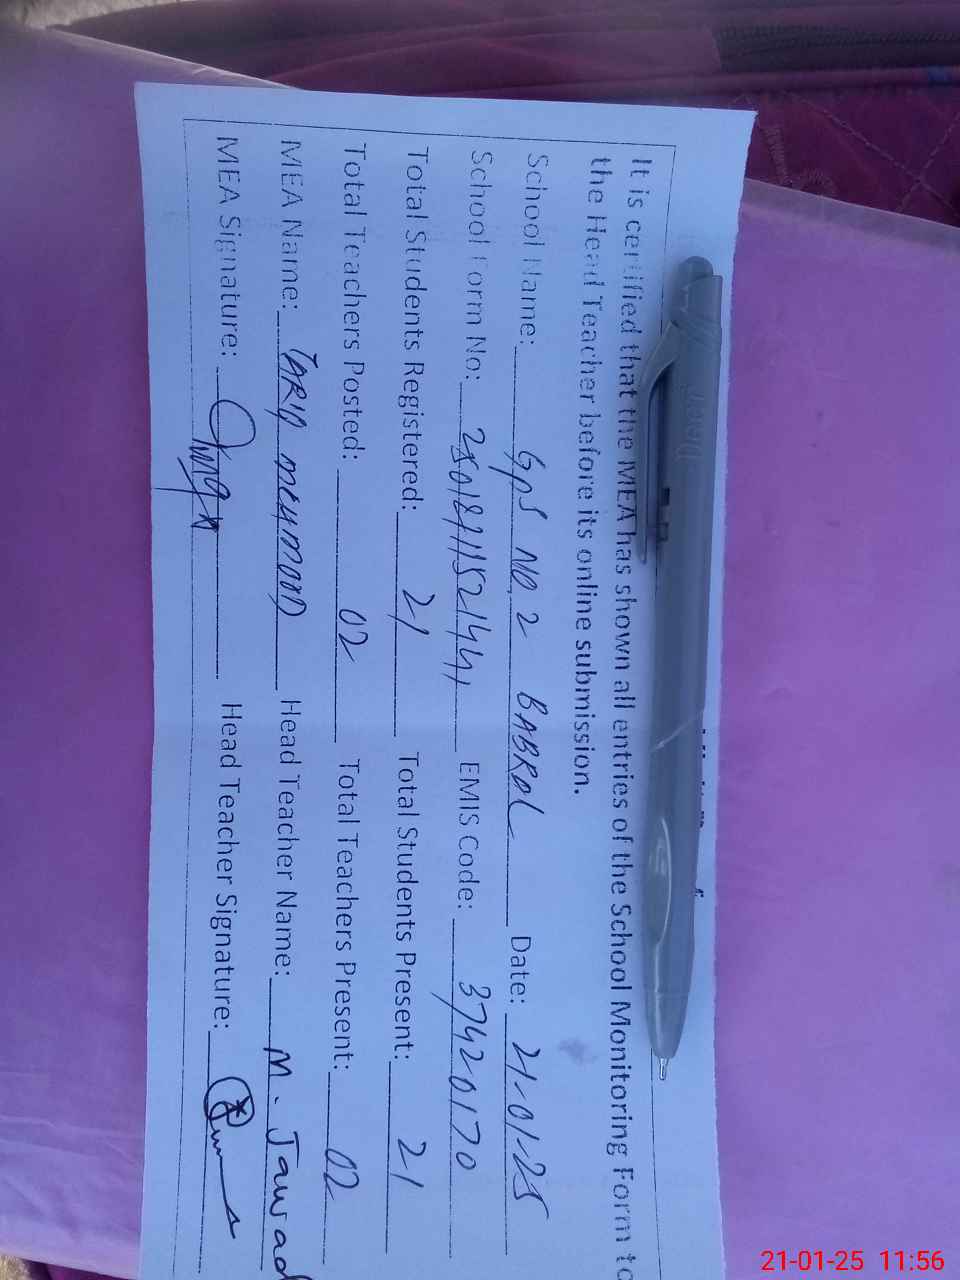 It is certified that the MEA has shown all entries of the School Monitoring Form to
the Head Teacher before its online submission.
School Name: GPS NO. 2 BABRAL Date: 21-01-25
School Form No: EMIS Code: 37420170
Total Students Registered: 21 Total Students Present: 21
Total Teachers Posted: 02 Total Teachers Present: 02
MEA Name: TARIQ MEHMOOD Head Teacher Name: M. Jawad
MEA Signature: Head Teacher Signature:
21-01-25 11:56